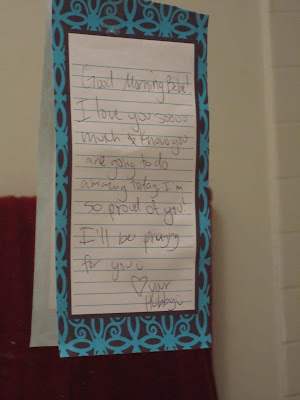 Good Morning Babe!
I love you soooo
much & know you
are going to do
amazing today. I'm
so proud of you!
I'll be praying
for you
♡ your
Hubby